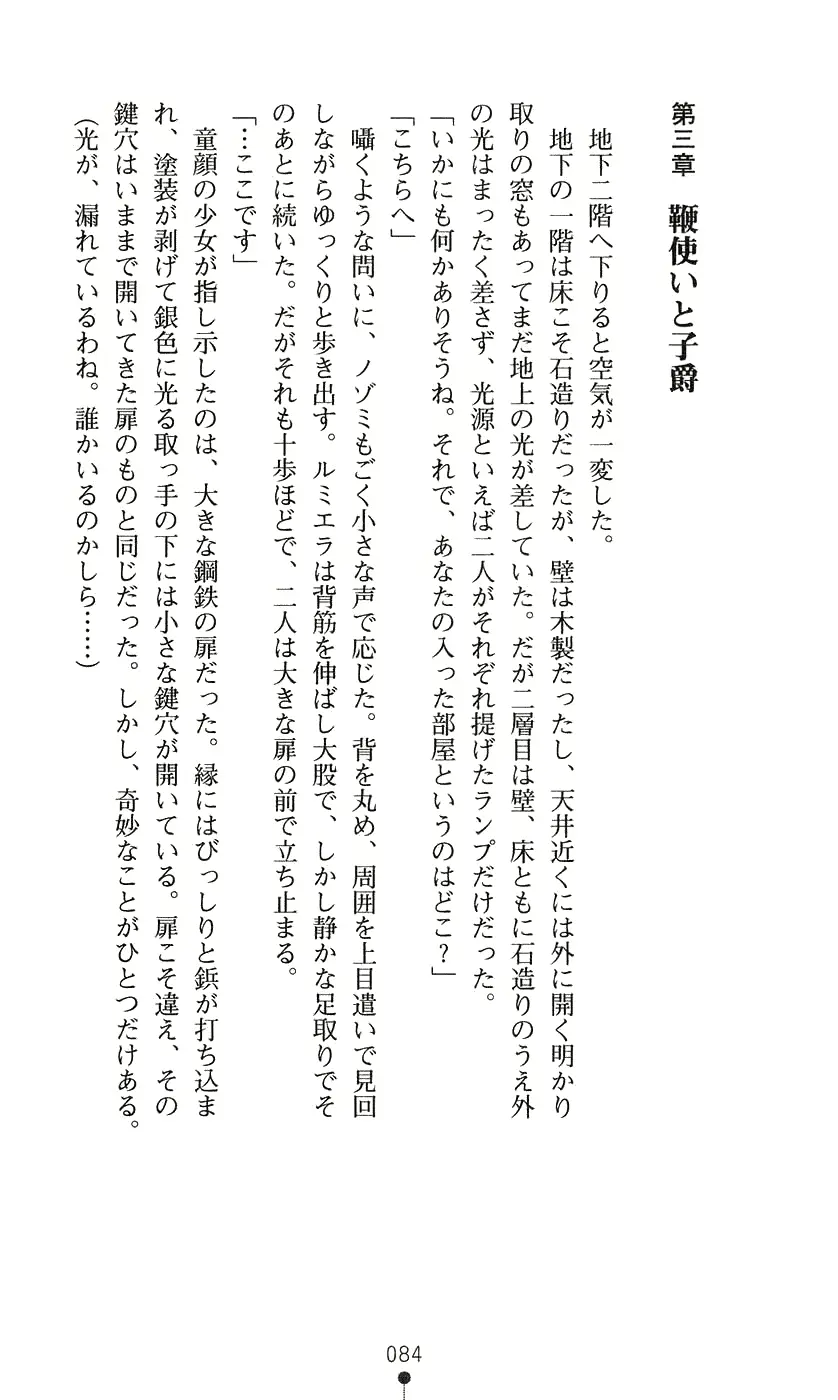 第三章　鞭使いと子爵
地下二階へ下りると空気が一変した。
地下の一階は床こそ石造りだったが、壁は木製だったし、天井近くには外に開く明かり
取りの窓もあってまだ地上の光が差していた。だが二層目は壁、床ともに石造りのうえ外
の光はまったく差さず、光源といえば二人がそれぞれ提げたランプだけだった。
「いかにも何かありそうね。それで、あなたの入った部屋というのはどこ？」
「こちらへ」
囁くような問いに、ノゾミもごく小さな声で応じた。背を丸め、周囲を上目遣いで見回
しながらゆっくりと歩き出す。ルミエラは背筋を伸ばし大股で、しかし静かな足取りでそ
のあとに続いた。だがそれも十歩ほどで、二人は大きな扉の前で立ち止まる。
「…ここです」
童顔の少女が指し示したのは、大きな鋼鉄の扉だった。縁にはびっしりと鋲が打ち込ま
れ、塗装が剥げて銀色に光る取っ手の下には小さな鍵穴が開いている。扉こそ違え、その
鍵穴はいままで開いてきた扉のものと同じだった。しかし、奇妙なことがひとつだけある。
（光が、漏れているわね。誰かいるのかしら……）
084